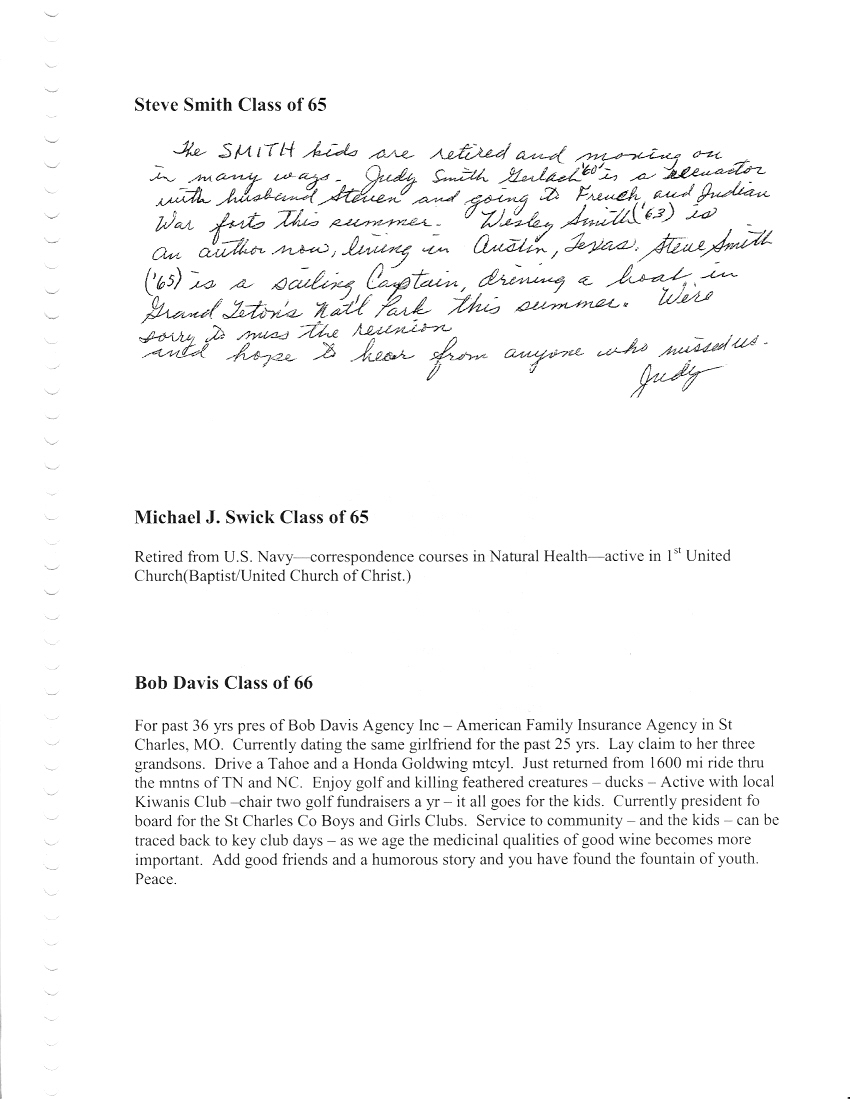 Steve Smith Class of 65
The SMITH kids are retired and moving on
in many ways. Judy Smith Gerlach '60 is a reenactor
with husband Steven and going to French and Indian
War forts this summer. Wesley Smith ('63) is
an author now, living in Austin, Texas. Steve Smith
('65) is a sailing Captain, driving a boat in
Grand Teton's Nat'l Park this summer. We're
sorry to miss the reunion
and hope to hear from anyone who missed us.
Judy
Michael J. Swick Class of 65
Retired from U.S. Navy—correspondence courses in Natural Health—active in 1st United
Church(Baptist/United Church of Christ.)
Bob Davis Class of 66
For past 36 yrs pres of Bob Davis Agency Inc – American Family Insurance Agency in St
Charles, MO. Currently dating the same girlfriend for the past 25 yrs. Lay claim to her three
grandsons. Drive a Tahoe and a Honda Goldwing mtcyl. Just returned from 1600 mi ride thru
the mntns of TN and NC. Enjoy golf and killing feathered creatures – ducks – Active with local
Kiwanis Club –chair two golf fundraisers a yr – it all goes for the kids. Currently president fo
board for the St Charles Co Boys and Girls Clubs. Service to community – and the kids – can be
traced back to key club days – as we age the medicinal qualities of good wine becomes more
important. Add good friends and a humorous story and you have found the fountain of youth.
Peace.